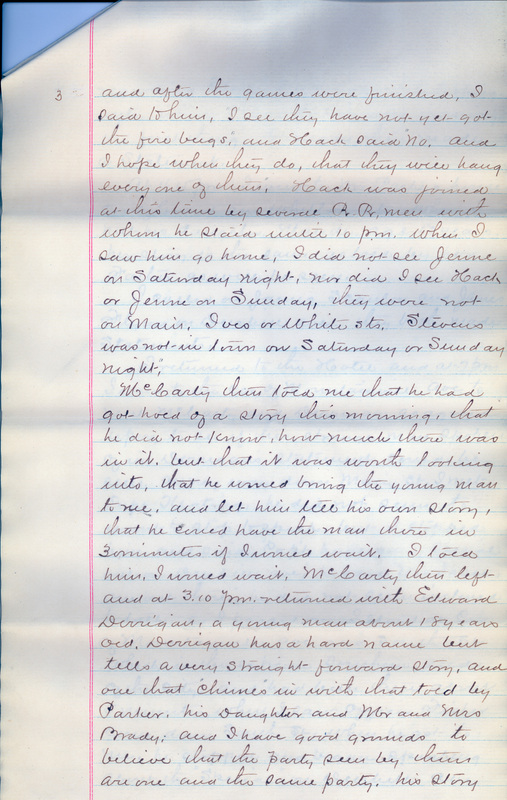 3 and after the games were finished, I
said to him, I see they have not yet got
the fire bugs, and Hack said "No. and
I hope when they do, that they will hang
every one of them", Hack was joined
at this time by several R.R. men with
whom he staid until 10 p.m. when I
saw him go home, I did not see Jenne
on Saturday night, nor did I see Hack
or Jenne on Sunday, they were not
on Main, Ives or White sts. Stevens
was not in town on Saturday or Sunday
night",
McCarty then told me that he had
got hold of a story this morning, that
he did not know, how much there was
in it, but that it was worth looking
into, that he would bring the young man
to me, and let him tell his own story,
that he could have the man there in
30 minutes if I would wait. I told
him, I would wait, McCarty then left
and at 3.10 p.m. returned with Edward
Derrigan, a young man about 18 years
old. Derrigan has a hard name but
tells a very straight forward story, and
one that "chimes" in with that told by
Parker, his Daughter and Mr and Mrs
Brady; and I have good grounds to
believe that the party seen by them
are one and the same party. his story